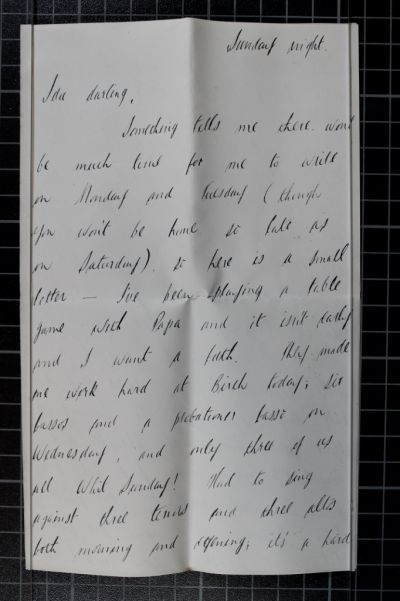 Sunday night.
Ida darling,
Something tells me there won't
be much time for me to write
on Monday and Tuesday (though
you won't be home so late as
on Saturday), so here is a small
letter — I've been playing a table
game with Papa and it isn't early
and I want a bath. They made
me work hard at Birch today; six
basses and a probationer basso on
Wednesday, and only three of us
all Whit Sunday! Had to sing
against three tenors and three altos
both morning and evening; it's a hard